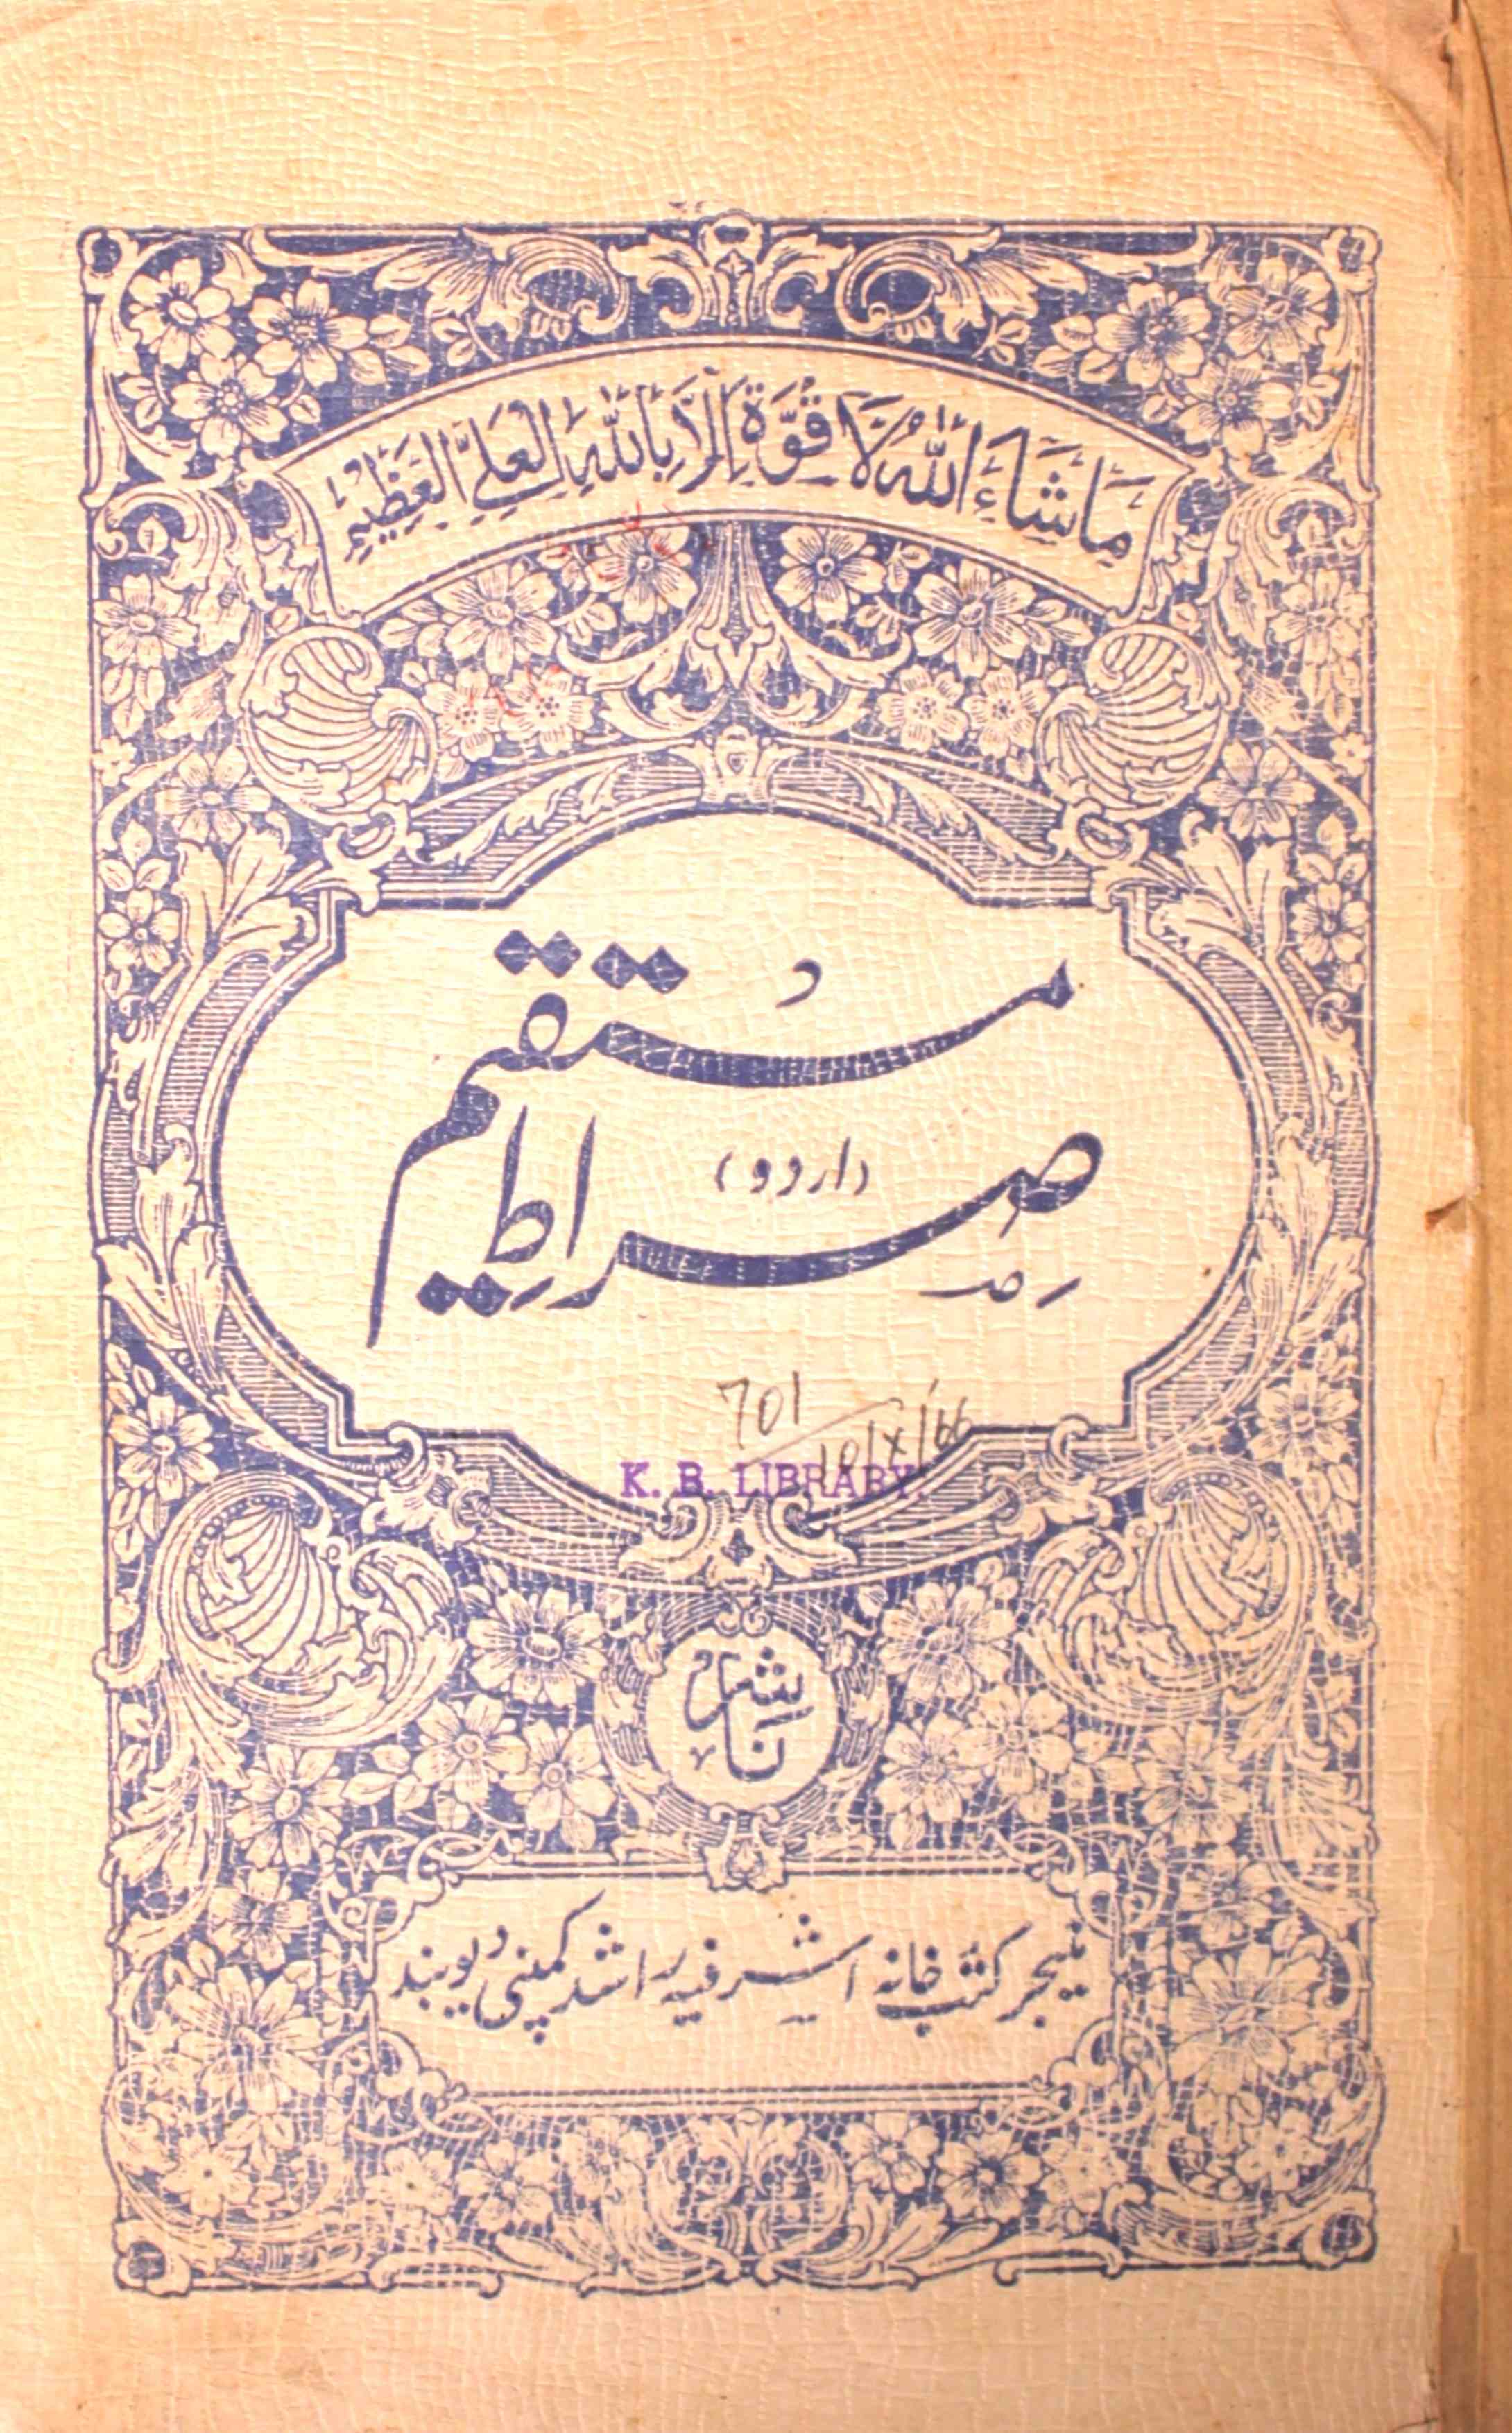 مَاشَاءَ اللّٰهُ لَا قُوَّةَ اِلَّا بِاللّٰهِ الْعَلِيِّ الْعَظِيْمِ
صِراطِ مُستقیم
(اردو)
701
10/X/66
K. B. LIBRARY.
ناشر
منیجر کتب خانہ اشرفیہ راشد کمپنی دیوبند